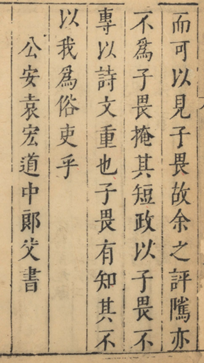 而可以見子畏故余之評隲亦
不爲子畏掩其短政以子畏不
專以詩文重也子畏有知其不
以我爲俗吏乎
公安袁宏道中郎父書